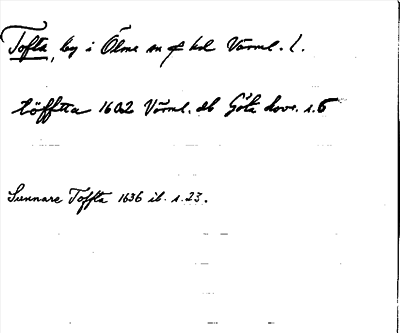 Tofta, by i Ölme sn o hd Värml. l.
töfftta 1602 Värml. db Göta hovr. s. 5
Sunnare Toffta 1636 ib. s. 23.